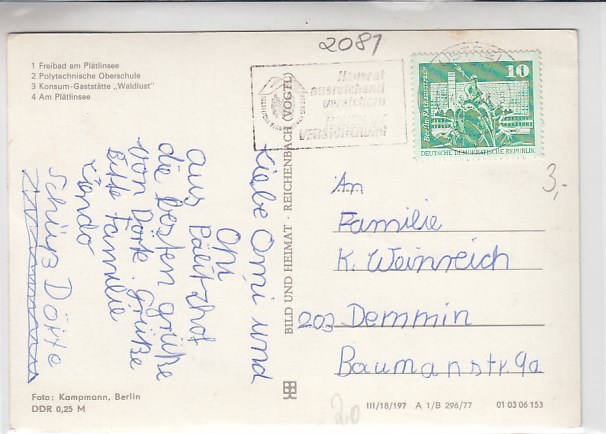 1 Freibad am Plätlinsee
2 Polytechnische Oberschule
3 Konsum-Gaststätte „Waldlust"
4 Am Plätlinsee
2081
Hausrat
ausreichend
versichern
10
Berlin, Rathausstraße
DEUTSCHE DEMOKRATISCHE REPUBLIK
BILD UND HEIMAT · REICHENBACH (VOGTL)
Liebe Omi und
Opi
aus
die besten grüße
von Dörte. Grüße
Bitte Familie
Schütz Dörte
3,-
An
Familie
K. Weinreich
203 Demmin
Baumanstr. 9a
Foto: Kampmann, Berlin
DDR 0,25 M
III/18/197 A 1/B 296/77 01 03 06 153
20